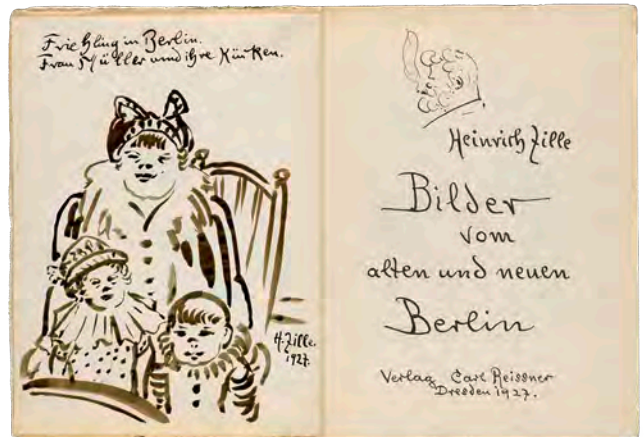 Frühling in Berlin.
Frau Müller und ihre Küken.
H. Zille.
1927.
Heinrich Zille
Bilder
vom
alten und neuen
Berlin
Verlag Carl Reissner
Dresden 1927.